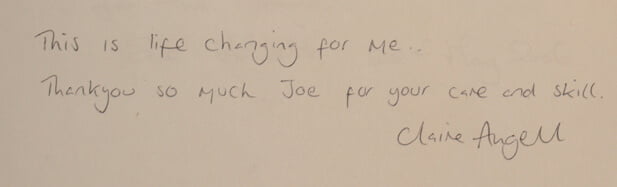 This is life changing for me..
Thankyou so much Joe for your care and skill.
Claire Angell